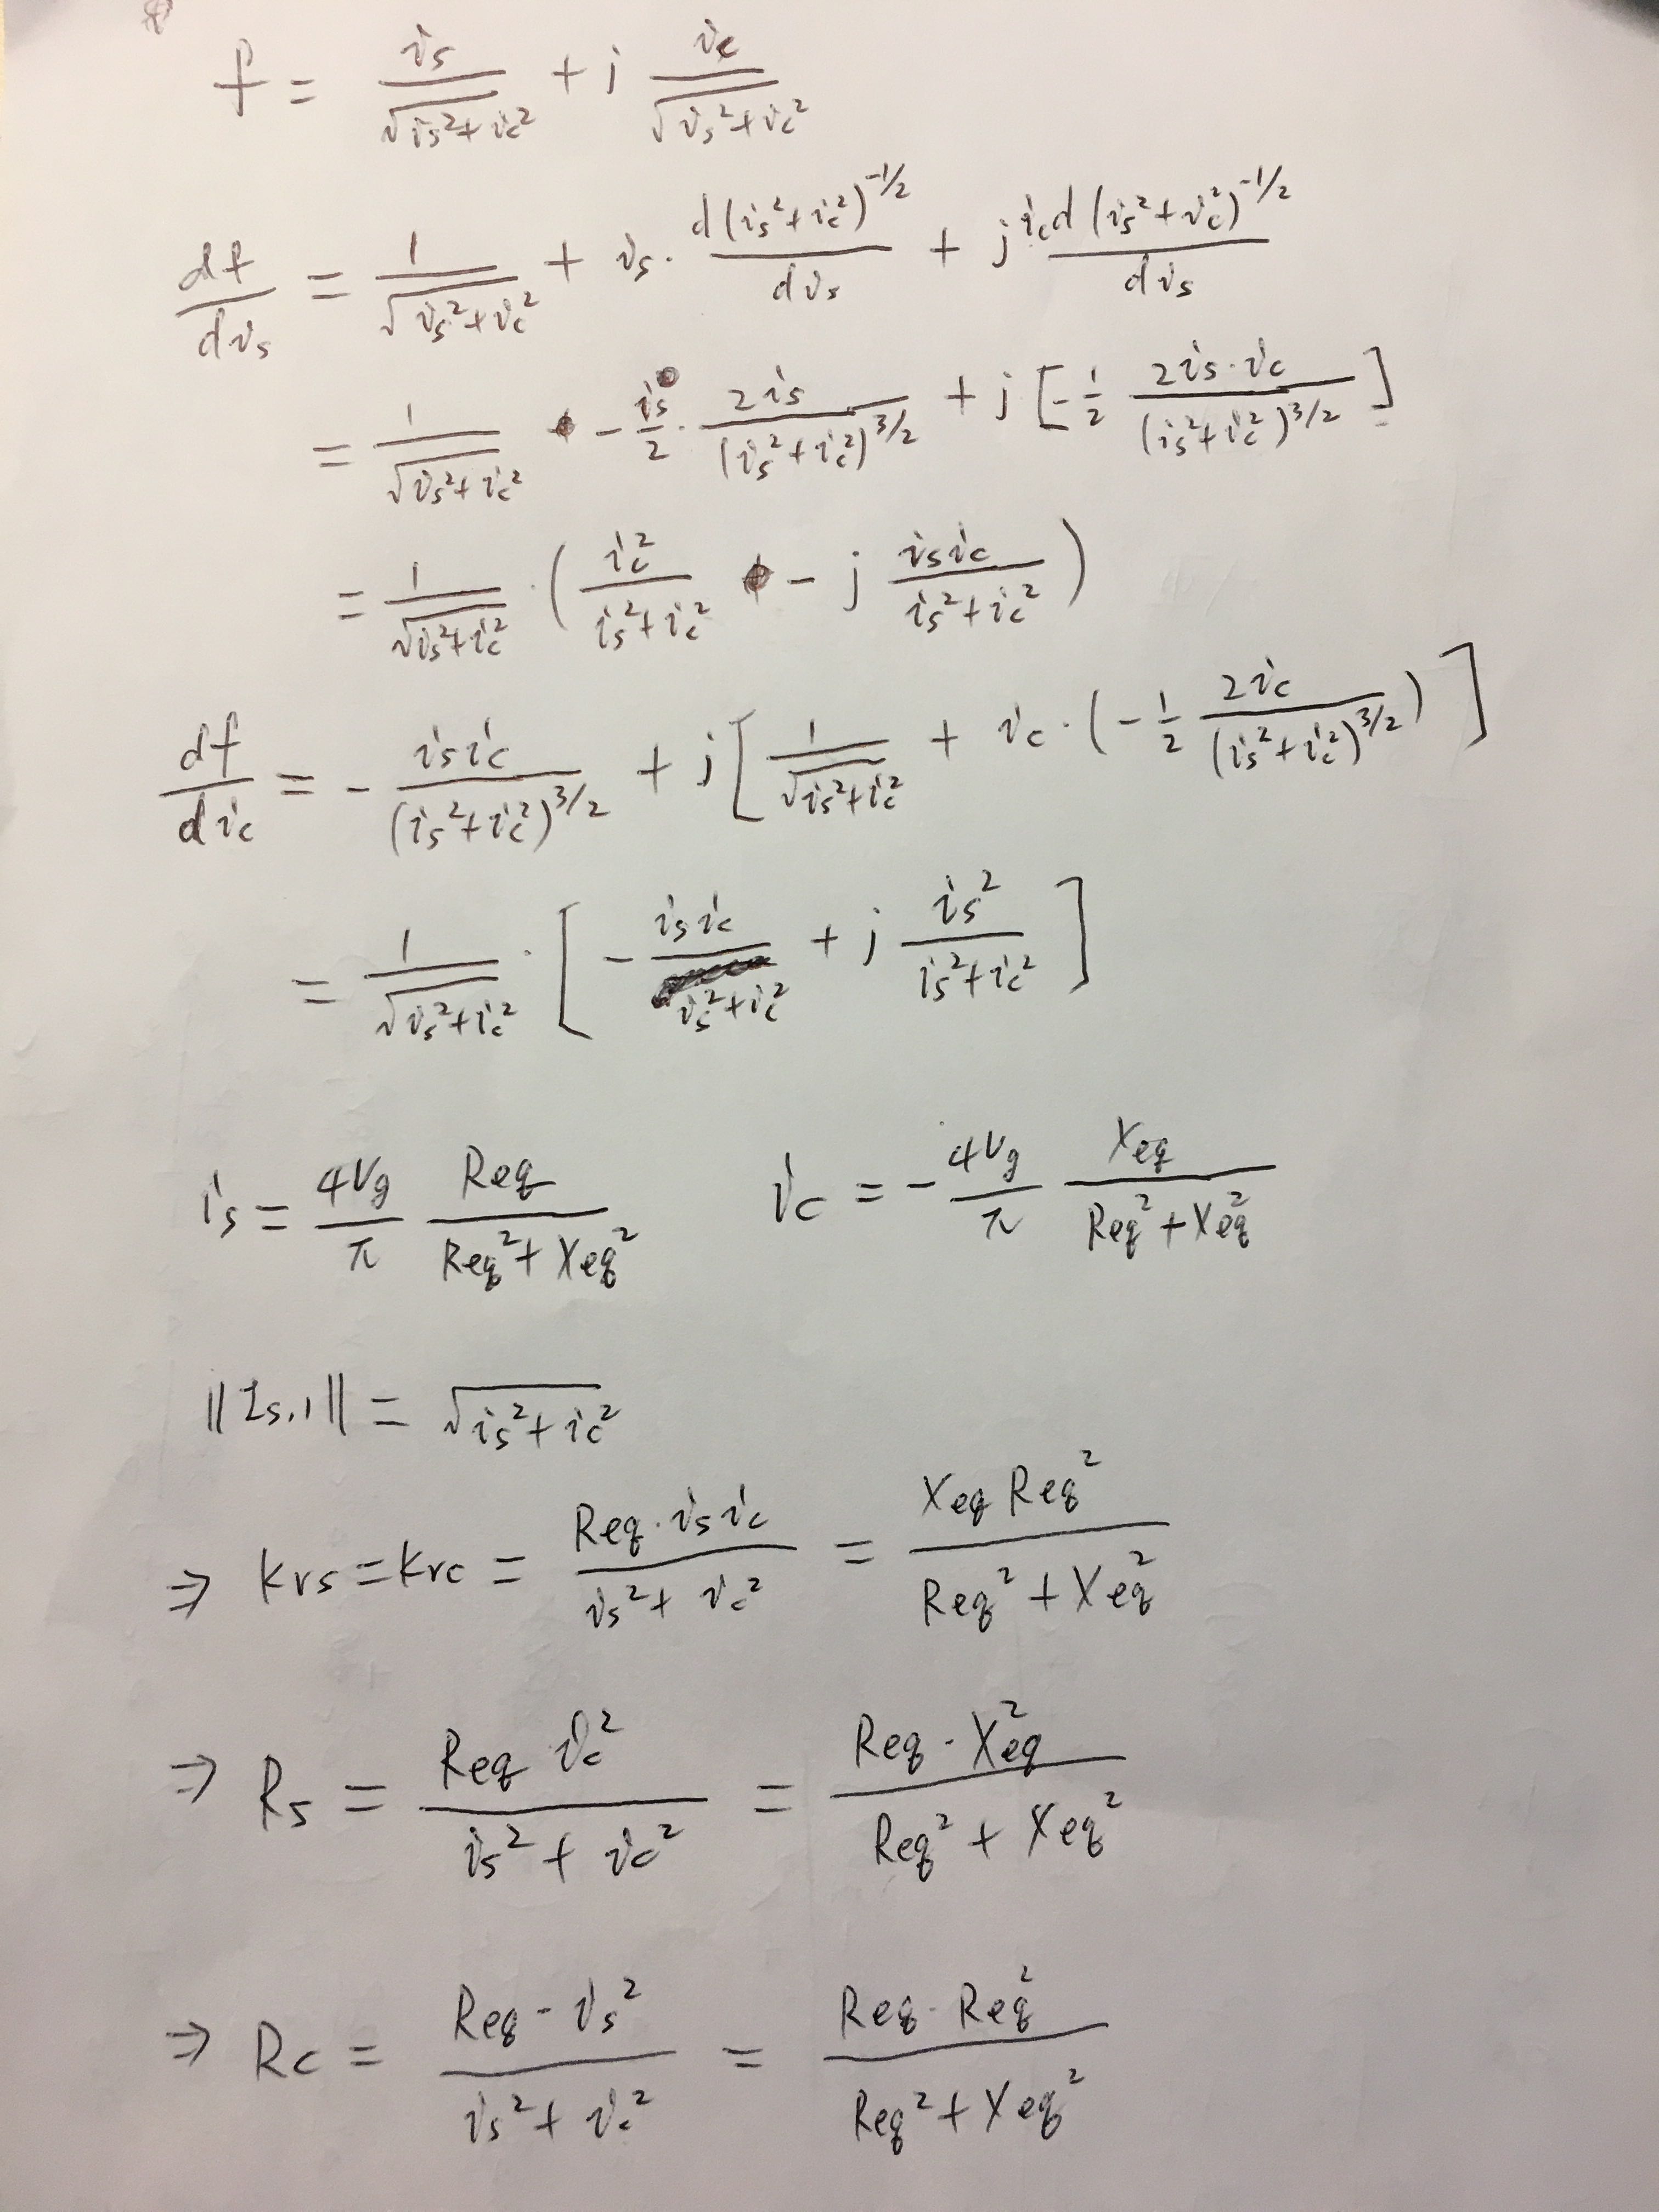 f = is/√(is²+ic²) + j ic/√(is²+ic²)
df/dis = 1/√(is²+ic²) + is · d(is²+ic²)^(-1/2)/dis + j ic d(is²+ic²)^(-1/2)/dis
= 1/√(is²+ic²) - is/2 · 2is/(is²+ic²)^(3/2) + j [-1/2 2is·ic/(is²+ic²)^(3/2)]
= 1/√(is²+ic²) · (ic²/(is²+ic²) - j isic/(is²+ic²))
df/dic = - isic/(is²+ic²)^(3/2) + j [1/√(is²+ic²) + ic · (-1/2 2ic/(is²+ic²)^(3/2))]
= 1/√(is²+ic²) · [- isic/(is²+ic²) + j is²/(is²+ic²)]
is = 4Vg/π Req/(Req²+Xeq²) ic = - 4Vg/π Xeq/(Req²+Xeq²)
||Is,1|| = √(is²+ic²)
⇒ Krs = Krc = Req·isic/(is²+ic²) = Xeq Req²/(Req²+Xeq²)
⇒ Rs = Req ic²/(is²+ic²) = Req·Xeq²/(Req²+Xeq²)
⇒ Rc = Req·is²/(is²+ic²) = Req·Req²/(Req²+Xeq²)